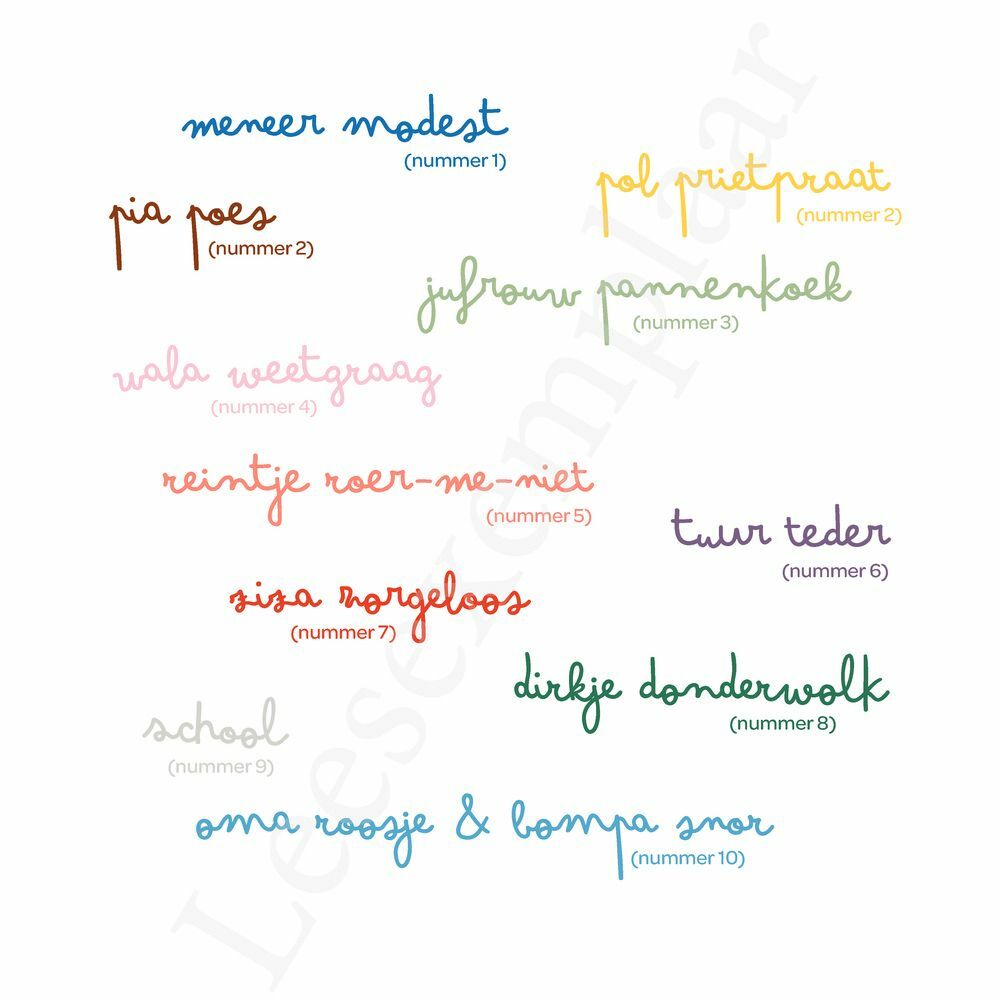 meneer modest
(nummer 1)
pol prietpraat
(nummer 2)
pia poes
(nummer 2)
jufrouw pannenkoek
(nummer 3)
wala weetgraag
(nummer 4)
reintje roer-me-niet
(nummer 5)
tuur teder
(nummer 6)
ziza zorgeloos
(nummer 7)
dirkje donderwolk
(nummer 8)
school
(nummer 9)
oma roosje & bompa snor
(nummer 10)
Leesexemplaar